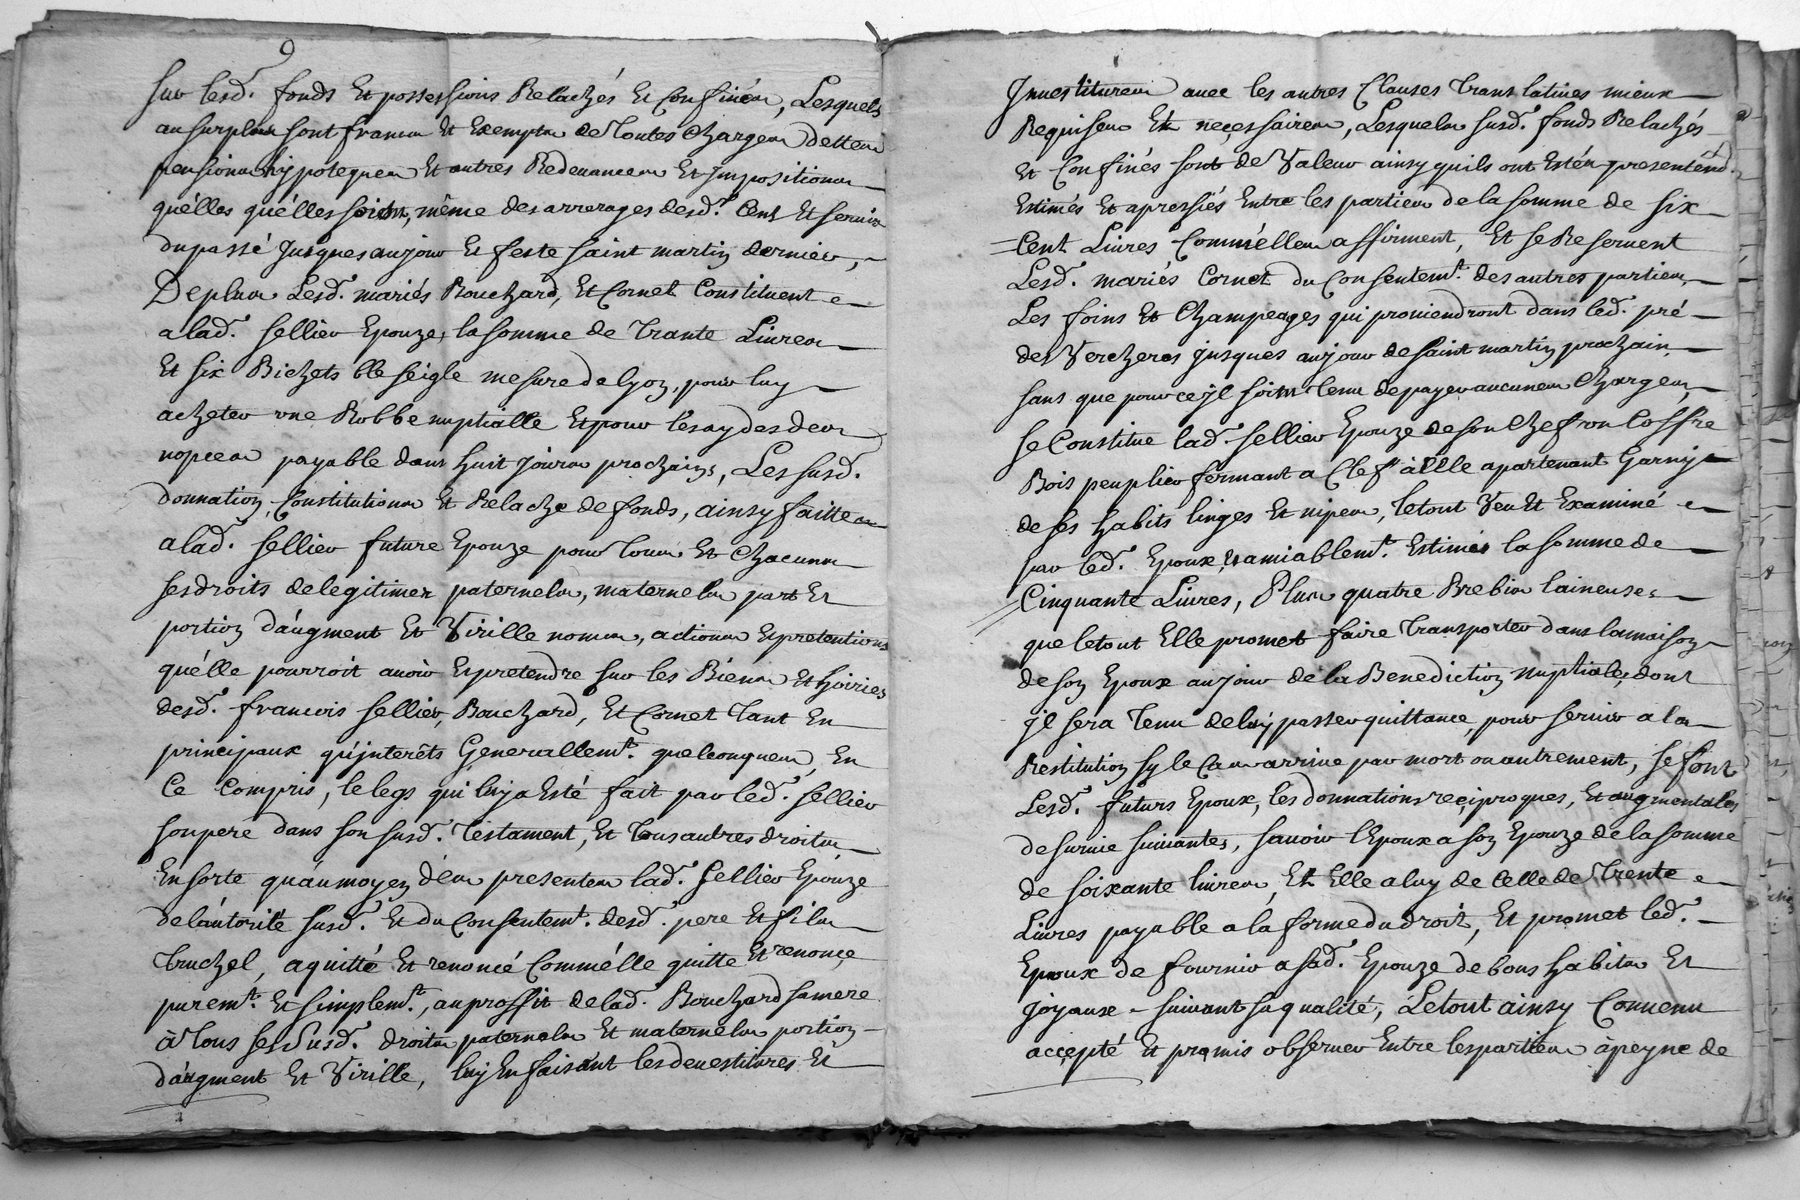 9
sur lesd. fonds Et possessions Relachés Et Confinés, Lesquels
au surplus sont francs Et Exempts de Toutes Charges dettes
pensions hypoteques Et autres Redevances Et Impositions
qu'elles qu'elles soient, même des arrerages desd. Cens Et servis
du passé Jusques au jour Et feste saint martin dernier,
De plus Lesd. mariés Bouchard, Et Cornet Constituent
a lad. sellier Epouze, la somme de Trante Livres
Et six Bichets ble seigle mesure de lyon, pour luy
acheter une Robbe nuptialle Et pour l'esay des deux
nopces payable dans huit Jours prochains, Les susd.
donnation, Constitutions Et Relache de fonds, ainsy faitte
a lad. sellier future Epouze pour Tous Et Chacuns
ses droits de legitimes paternels, maternels part Et
portion d'augment Et Virille noms, actions Et pretentions
qu'elle pourroit avoir Et pretendre sur les Biens Et hoiries
desd. francois sellier, Bouchard, Et Cornet Tant En
principaux qu'interêts Generallemt. quelconques, En
Ce Compris, le legs qui luy a Esté fait par led. sellier
son pere dans son susd. Testament, Et Tous autres droits
En sorte qu'au moyen d'es presentes lad. Sellier Epouze
de l'autorité susd. Et du Consentemt. desd. pere Et fils
Truchel, a quitté Et renoncé Comm'elle quitte Et renonce
puremt. Et simplemt., au proffit de lad. Bouchard sa mere
à Tous ses susd. droits paternels Et maternels portion
d'augment Et Virille, luy En faisant les devestitures Et
Investitures avec les autres Clauses Translatives mieux
Requises Et necessaires, Lesquels susd. fonds Relachés
Et Confinés sont de Valeur ainsy quils ont Estés presentemt.
Estimés Et apressiés Entre les parties de la somme de six
Cent Livres Comm'elles affirment, Et se Reservent
Lesd. mariés Cornet du Consentemt. des autres parties,
Les foins Et Champeages qui proviendront dans led. pré
des Vercheres jusques au jour de saint martin prochain,
sans que pour ce jl soient tenu de payer aucunes Charges,
se Constitue lad. sellier Epouze de son Chef un Coffre
Bois peuplier fermant a Clef à Elle apartenant Garny
de ses habits linges Et nipes, le tout Veu Et Examiné
par led. Epoux, Et amiablemt. Estimés la somme de
Cinquante Livres, Plus quatre Brebis laineuses
que le tout Elle promet faire Transporter dans la maison
de son Epoux au jour de la Benediction nuptiale, dont
jl sera Tenu de luy passer quittance, pour servir a la
Restitution sy le Cas arrive par mort ou autrement, se font
Lesd. futurs Epoux, les donnations reciproques, Et augmentales
de survie suivantes, savoir l'Epoux a son Epouze de la somme
de soixante livres, Et Elle a luy de Celle de Trente
Livres payable a la forme du droit, Et promet led.
Epoux de fournir a sad. Epouze de bons habits Et
joyaux suivant sa qualité, Le tout ainsy Convenu
accepté Et promis observer Entre les parties à peyne de